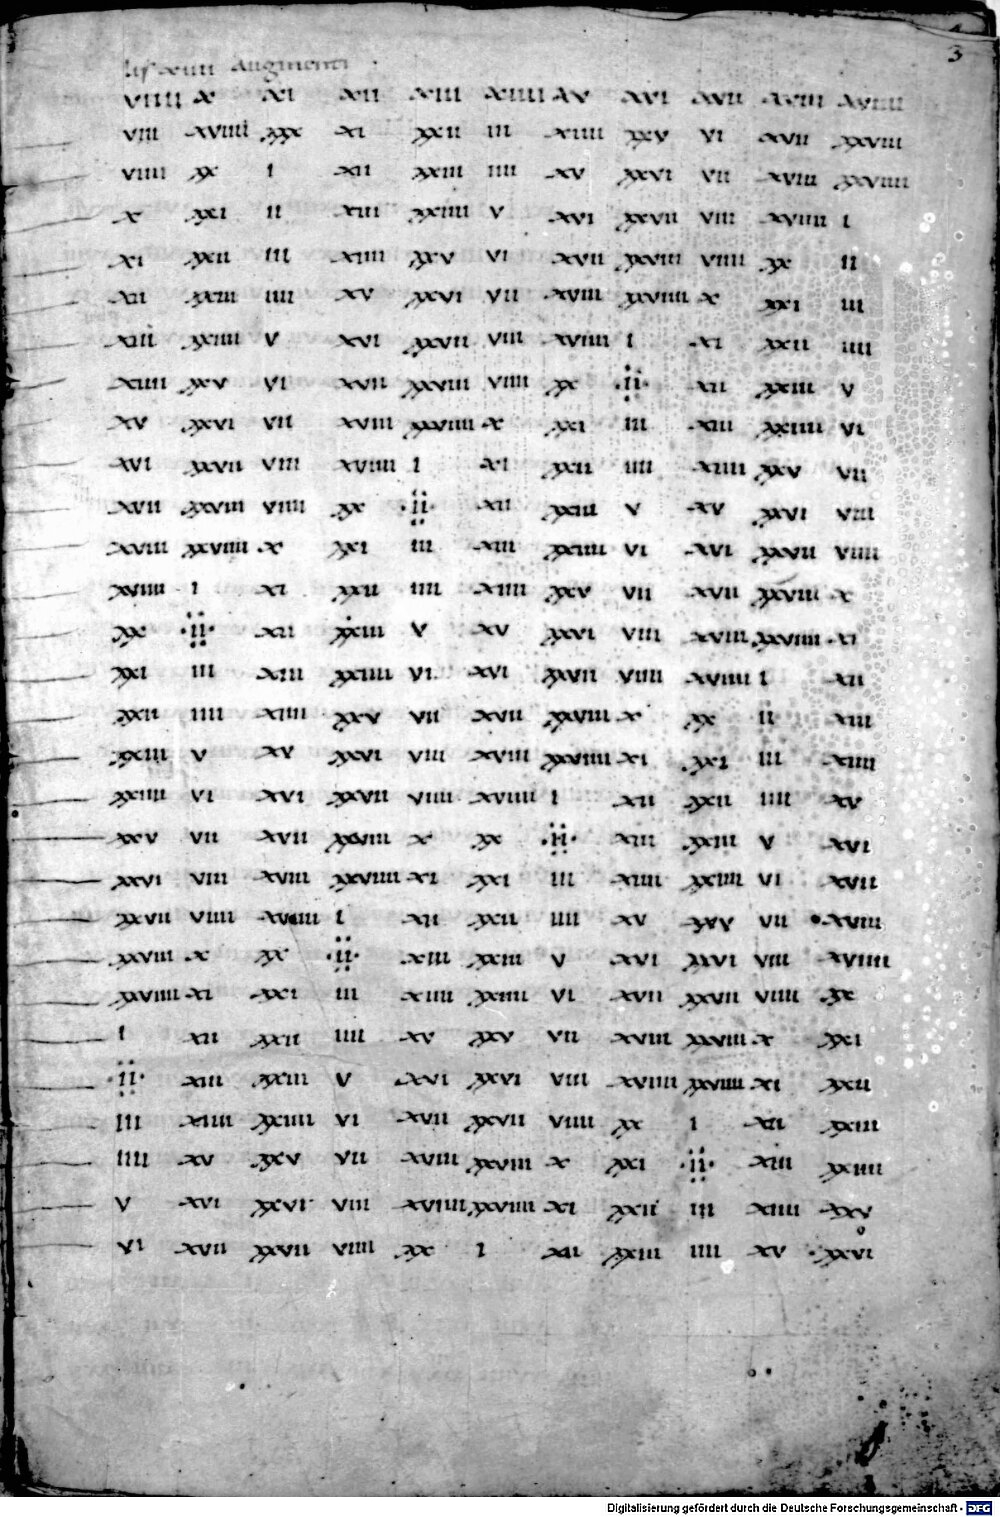 3
xiiii augmenti
viiii x xi xii xiii xiiii xv xvi xvii xviii xviiii
viii xviiii xxx xi xxii iii xiiii xxv vi xvii xxviii
viiii xx i xii xxiii iiii xv xxvi vii xviii xxviiii
x xxi ii xiii xxiiii v xvi xxvii viii xviiii i
xi xxii iii xiiii xxv vi xvii xxviii viiii xx ii
xii xxiii iiii xv xxvi vii xviii xxviiii x xxi iii
xiii xxiiii v xvi xxvii viii xviiii i xi xxii iiii
xiiii xxv vi xvii xxviii viiii xx ·ii· xii xxiii v
xv xxvi vii xviii xxviiii x xxi iii xiii xxiiii vi
xvi xxvii viii xviiii i xi xxii iiii xiiii xxv vii
xvii xxviii viiii xx ·ii· xii xxiii v xv xxvi viii
xviii xxviiii x xxi iii xiii xxiiii vi xvi xxvii viiii
xviiii i xi xxii iiii xiiii xxv vii xvii xxviii x
xx ·ii· xii xxiii v xv xxvi viii xviii xxviiii xi
xxi iii xiii xxiiii vi xvi xxvii viiii xviiii i xii
xxii iiii xiiii xxv vii xvii xxviii x xx ii xiii
xxiii v xv xxvi viii xviii xxviiii xi xxi iii xiiii
xxiiii vi xvi xxvii viiii xviiii i xii xxii iiii xv
xxv vii xvii xxviii x xx ·ii· xiii xxiii v xvi
xxvi viii xviii xxviiii xi xxi iii xiiii xxiiii vi xvii
xxvii viiii xviiii i xii xxii iiii xv xxv vii xviii
xxviii x xx ·ii· xiii xxiii v xvi xxvi viii xviiii
xxviiii xi xxi iii xiiii xxiiii vi xvii xxvii viiii xx
i xii xxii iiii xv xxv vii xviii xxviii x xxi
·ii· xiii xxiii v xvi xxvi viii xviiii xxviiii xi xxii
iii xiiii xxiiii vi xvii xxvii viiii xx i xii xxiii
iiii xv xxv vii xviii xxviii x xxi ·ii· xiii xxiiii
v xvi xxvi viii xviiii xxviiii xi xxii iii xiiii xxv
vi xvii xxvii viiii xx i xii xxiii iiii xv xxvi
Digitalisierung gefördert durch die Deutsche Forschungsgemeinschaft - DFG